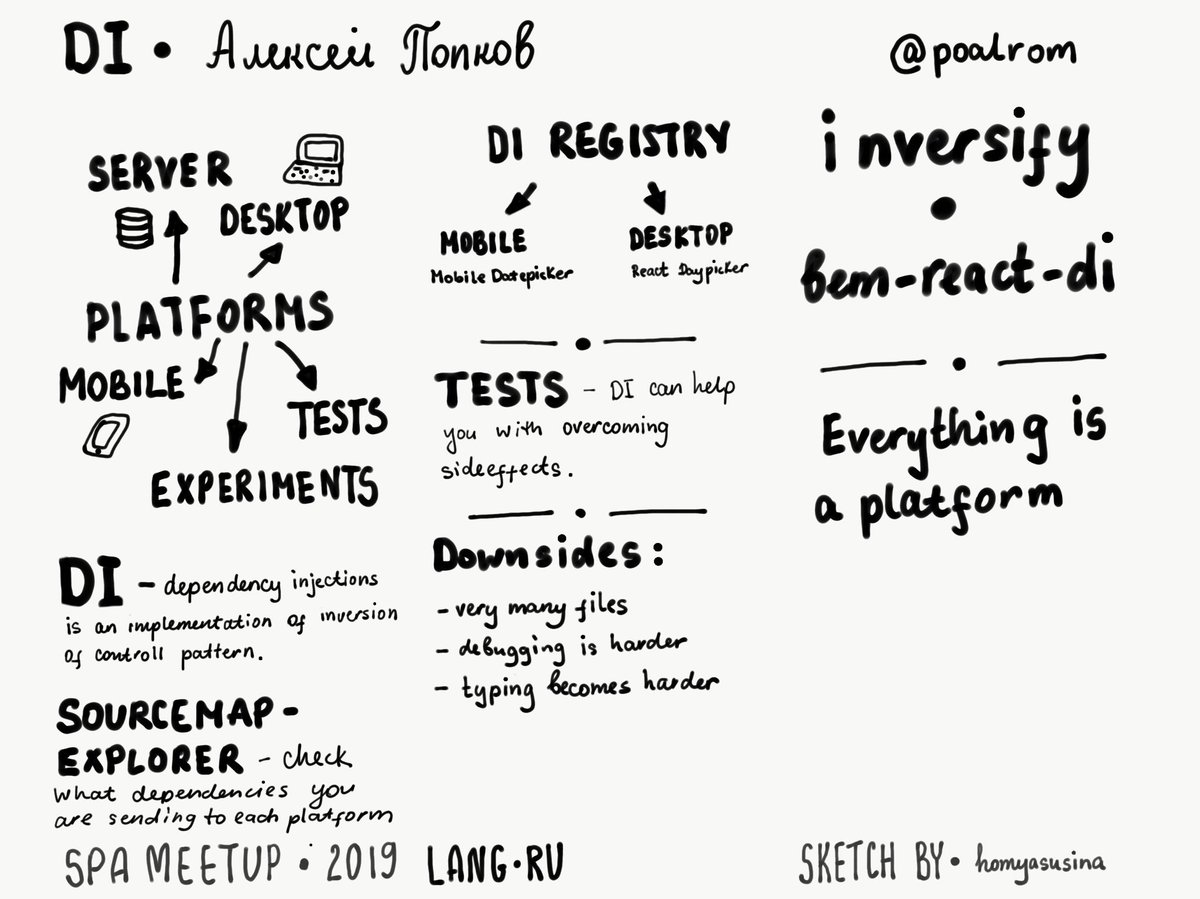 DI • Алексей Попков
@poalrom
SERVER
DESKTOP
PLATFORMS
MOBILE
TESTS
EXPERIMENTS
DI - dependency injections
is an implementation of inversion
of controll pattern.
SOURCEMAP-
EXPLORER - check
what dependencies you
are sending to each platform
DI REGISTRY
MOBILE
Mobile Datepicker
DESKTOP
React Daypicker
TESTS - DI can help
you with overcoming
sideeffects.
Downsides:
- very many files
- debugging is harder
- typing becomes harder
inversify
•
bem-react-di
Everything is
a platform
SPA MEETUP • 2019 LANG•RU
SKETCH BY • homyasusina